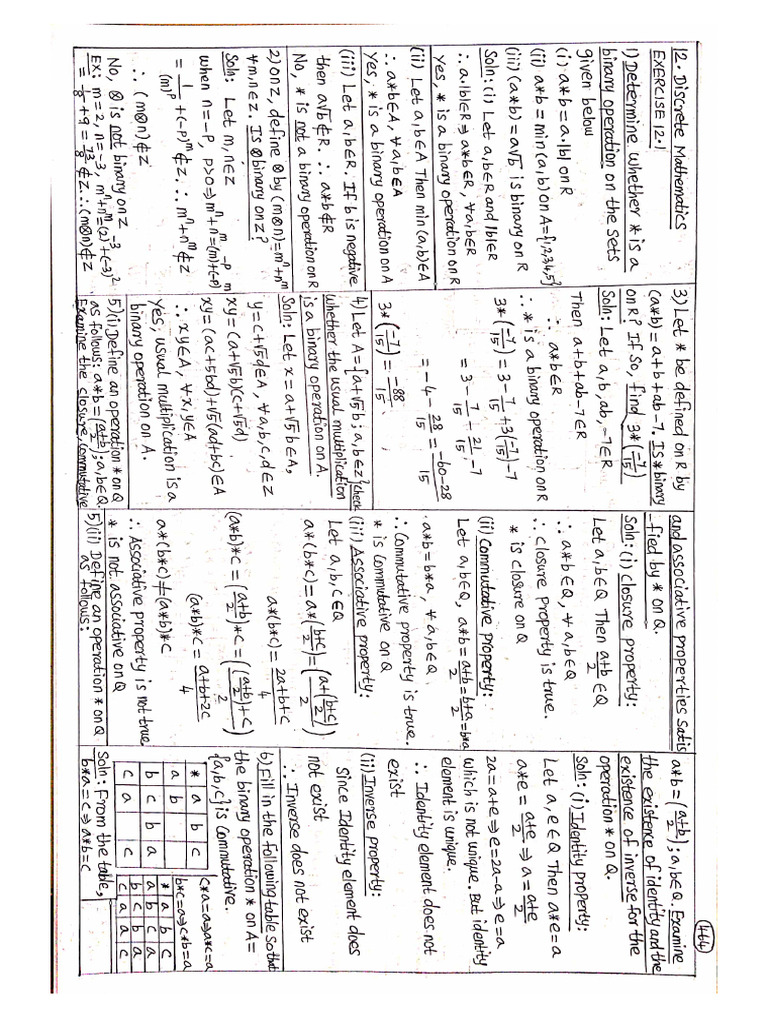 464
12. Discrete Mathematics
EXERCISE 12.1
1) Determine whether * is a
binary operation on the sets
given below
(i) a*b = a.|b| on R
(ii) a*b = min(a,b) on A={1,2,3,4,5}
(iii) (a*b) = a√b is binary on R
Soln: (i) Let a,b∈R and |b|∈R
∴ a.|b|∈R ⇒ a*b∈R, ∀a,b∈R
Yes, * is a binary operation on R
(ii) Let a,b∈A Then min(a,b)∈A
∴ a*b∈A, ∀a,b∈A
Yes, * is a binary operation on A
(iii) Let a,b∈R. If b is negative
then a√b∉R. ∴ a*b∉R
No, * is not a binary operation on R
2) On z, define ⊗ by (m⊗n)=mⁿ+nᵐ
∀m,n∈z. Is ⊗ binary on z?
Soln: Let m,n∈z
when n=-p, p>0 ⇒ mⁿ+nᵐ=(m)⁻ᵖ+(-p)ᵐ
= 1/(m)ᵖ +(-p)ᵐ∉z. ∴ mⁿ+nᵐ∉z
∴ (m⊗n)∉z
No, ⊗ is not binary on z
Ex: m=2, n=-3, mⁿ+nᵐ=(2)⁻³+(-3)²
= 1/8 +9 = 73/8 ∉z. ∴ (m⊗n)∉z
3) Let * be defined on R by
(a*b)=a+b+ab-7. Is * binary
on R? If So, find 3*(-7/15)
Soln: Let a,b,ab,-7∈R
Then a+b+ab-7∈R
∴ a*b∈R
∴ * is a binary operation on R
3*(-7/15) = 3-7/15+3(-7/15)-7
= 3-7/15-21/15-7
= -4-28/15 = -60-28/15
3*(-7/15) = -88/15
4) Let A={a+√5b; a,b∈z} check
whether the usual multiplication
is a binary operation on A.
Soln: Let x=a+√5b∈A,
y=c+√5d∈A, ∀a,b,c,d∈z
xy=(a+√5b)(c+√5d)
xy=(ac+5bd)+√5(ad+bc)∈A
∴ xy∈A, ∀x,y∈A
Yes, usual multiplication is a
binary operation on A.
5)(i) Define an operation * on Q
as follows: a*b=(a+b/2); a,b∈Q.
Examine the closure, commutative
and associative properties satis
-fied by * on Q.
Soln: (i) closure property:
Let a,b∈Q Then a+b/2 ∈Q
∴ a*b∈Q, ∀a,b∈Q
∴ closure property is true.
* is closure on Q
(ii) Commutative property:
Let a,b∈Q, a*b=a+b/2=b+a/2=b*a
a*b=b*a, ∀a,b∈Q
∴ Commutative property is true.
* is commutative on Q
(iii) Associative property:
Let a,b,c∈Q
a*(b*c)=a*(b+c/2)=(a+(b+c/2)/2)
a*(b*c)=2a+b+c/4
(a*b)*c=(a+b/2)*c=((a+b/2)+c/2)
(a*b)*c=a+b+2c/4
a*(b*c)≠(a*b)*c
∴ Associative property is not true
* is not associative on Q
5)(ii) Define an operation * on Q
as follows:
a*b=(a+b/2); a,b∈Q. Examine
the existence of identity and the
existence of inverse for the
operation * on Q.
Soln: (i) Identity property:
Let a,e∈Q Then a*e=a
a*e=a+e/2 ⇒ a=a+e/2
2a=a+e ⇒ e=2a-a ⇒ e=a
which is not unique. But identity
element is unique.
∴ Identity element does not
exist
(ii) Inverse property:
Since Identity element does
not exist
∴ Inverse does not exist
6) Fill in the following table so that
the binary operation * on A=
{a,b,c} is commutative.
* a b c
a b
b c b a
c a c
Soln: From the table,
b*a=c ⇒ a*b=c
c*a=a ⇒ a*c=a
b*c=a ⇒ c*b=a
* a b c
a b c a
b c b a
c a a c